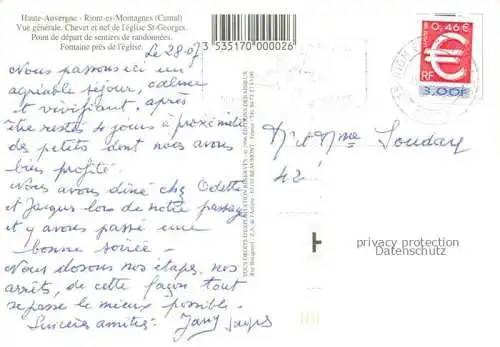 Haute-Auvergne - Riom-es-Montagnes (Cantal)
Vue générale. Chevet et nef de l'église St-Georges.
Point de départ de sentiers de randonnées.
Fontaine près de l'église.
3 535170 000026
Le 28-07
Nous passons ici un
agréable séjour, calme
et vivifiant, après
être restés 4 jours à proximité
des petits dont nous avons
bien profité.
Nous avons dîné chez Odette
et Jacques lors de notre passage
et y avons passé une
bonne soirée -
Nous dosons nos étapes, nos
arrêts, de cette façon tout
se passe le mieux possible.
Sincères amitiés - Jany Jacques
TOUS DROITS D'EXPLOITATION RÉSERVÉS
0,46 €
RF
3,00F
RIOM
Mr et Mme Souday
42
privacy protection
Datenschutz